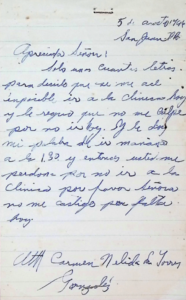 5 de agosto/44
San Juan P.R.
Apreciado Señor:
Solo unas cuantas letras
para decirle que se me asé
imposible ir a la clinica hoy
y le ruego que no me castigue
por no ir hoy. Yo le doy
mi palabra de ir mañana
a la 1.30 y entonces usted me
perdona por no ir a la
clinica por favor Señor
no me castigue por faltar
hoy.
Att Carmen Nelida de Torres
Gonzalez